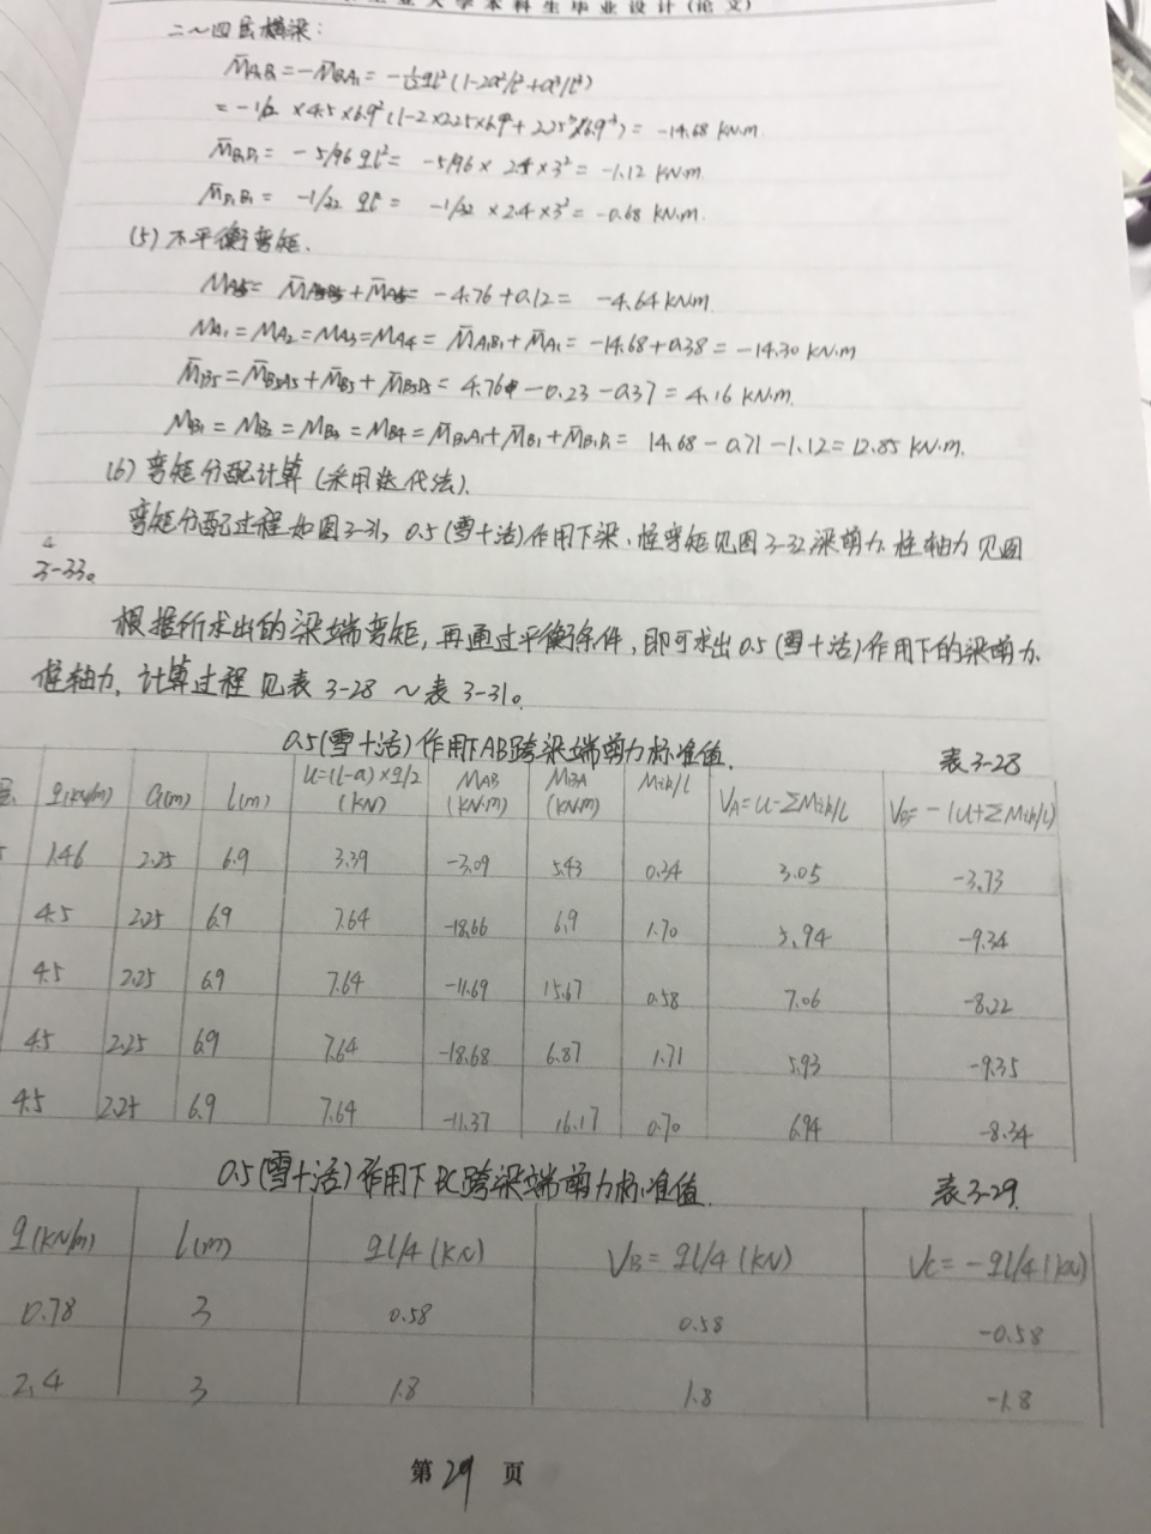 大学本科生毕业设计(论文)
二~四层横梁:
M̄A₁B₁=-M̄B₁A₁= -1/12ql²(1-2a²/l²+a³/l³)
= -1/12 ×4.5×6.9²(1-2×2.25²×6.9²+2.25³/6.9³)= -14.68 kN·m
M̄B₁D₁= -5/96 ql²= -5/96× 2.4 ×3²= -1.12 kN·m.
M̄D₁B₁= -1/32 ql²= -1/32 ×2.4×3²= -0.68 kN·m.
(5)不平衡弯矩.
MA5= M̄A5B5+M̄A5= -4.76+0.12= -4.64kN·m.
MA₁=MA₂=MA3=MA4= M̄A₁B₁+M̄A₁= -14.68+0.38= -14.30 kN·m
M̄B5=M̄B5A5+M̄B5+M̄B5D5= 4.76-0.23-0.37= 4.16 kN·m.
MB₁=MB₂=MB₃=MB4=M̄B₁A₁+M̄B₁+M̄B₁D₁= 14.68-0.71-1.12=12.85 kN·m.
(6)弯矩分配计算(采用迭代法).
弯矩分配过程如图3-31, 0.5(雪+活)作用下梁、柱弯矩见图3-32梁剪力.柱轴力见图
3-33。
根据所求出的梁端弯矩,再通过平衡条件,即可求出0.5(雪+活)作用下的梁剪力.
柱轴力,计算过程见表3-28~表3-31。
0.5(雪+活)作用下AB跨梁端剪力标准值. 表3-28
层 q(kN/m) a(m) l(m) u=(l-a)×q/2 (kN) MAB (kN·m) MBA (kN·m) Mik/l VA=u-ΣMik/l VB=-(u+ΣMik/l)
5 1.46 2.25 6.9 3.39 -3.09 5.43 0.34 3.05 -3.73
4.5 2.25 6.9 7.64 -18.66 6.9 1.70 5.94 -9.34
4.5 2.25 6.9 7.64 -11.69 15.67 0.58 7.06 -8.22
4.5 2.25 6.9 7.64 -18.68 6.87 1.71 5.93 -9.35
4.5 2.25 6.9 7.64 -11.37 16.17 0.70 6.94 -8.34
0.5(雪+活)作用下BC跨梁端剪力标准值. 表3-29.
q(kN/m) l(m) ql/4(kN) VB=ql/4(kN) VC=-ql/4(kN)
0.78 3 0.58 0.58 -0.58
2.4 3 1.8 1.8 -1.8
第29页